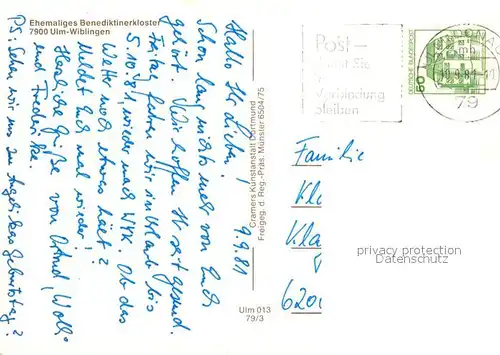 Ehemaliges Benediktinerkloster
7900 Ulm-Wiblingen
9.9.81
Hallo Ihr Lieben!
Schon lang nichts mehr von Euch
gehört. Wir hoffen Ihr seit gesund.
Freitag fahren wir in Urlaub bis
5.10.81, wieder nach Ob das
Wetter noch etwas hält?
Meldet Euch mal wieder!
Herzliche Grüße von
und Frederike.
PS: Sehen wir uns zu Angelikas Geburtstag?
Cramers Kunstanstalt Dortmund
Freigeg. d. Reg.-Präs. Münster 6504/75
Ulm 013
79/3
Post –
damit Sie
in
Verbindung
bleiben
DONAU
mh
9.81
79
DEUTSCHE BUNDESPOST
50
Familie
Kl
Kla
620
privacy protection
Datenschutz